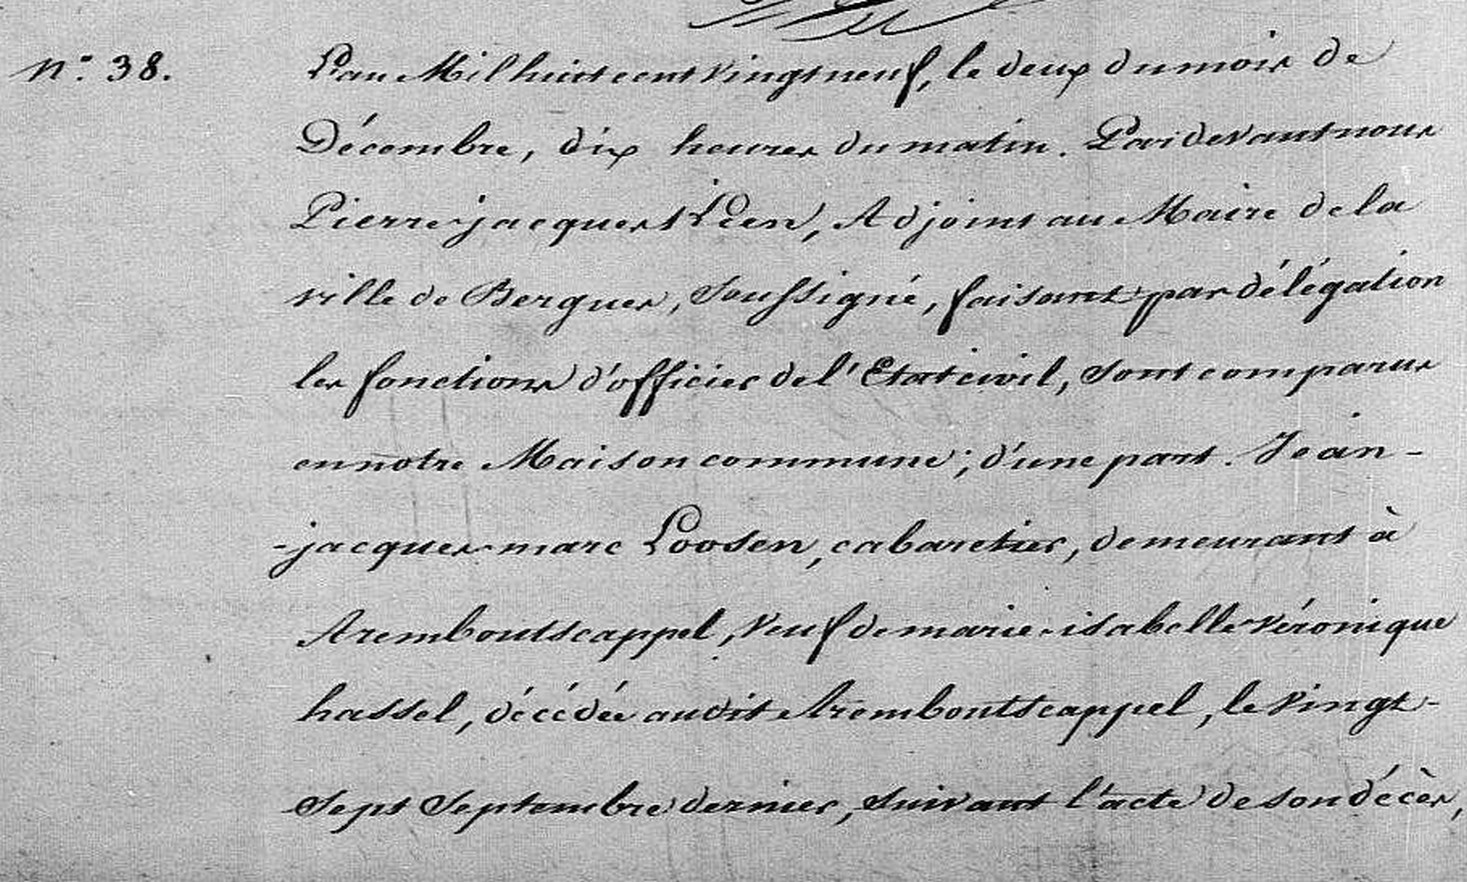 N.° 38.
L'an Mil huit cent vingt neuf, le deux du mois de
Décembre, dix heures du matin. Par devant nous
Pierre-jacques, Adjoint au Maire de la
ville de Bergues, Soussigné, faisant par délégation
les fonctions d'officier de l'Etat civil, Sont comparus
en notre Maison commune; d'une part. Jean-
-jacques-marc Loosen, cabaretier, demeurant à
Arembouts cappel, veuf de marie-isabelle véronique
hassel, décédée audit Arembouts cappel, le vingt-
Sept Septembre dernier, Suivant l'acte de son décès,